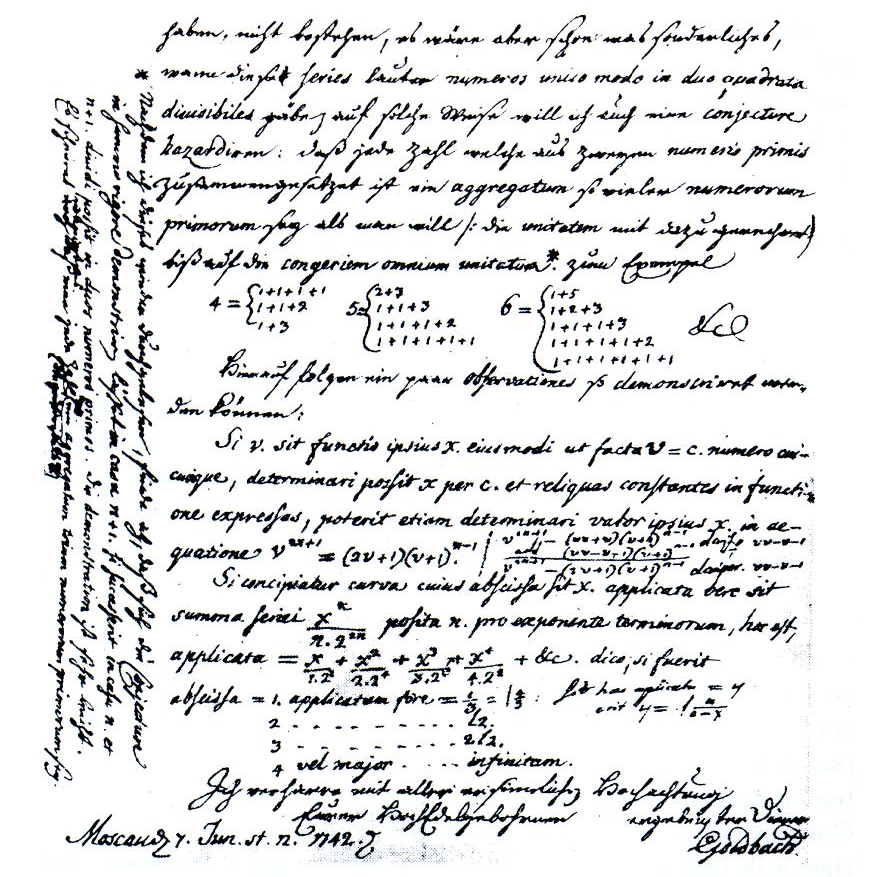 haben, nicht bestehen, es wäre aber schon was sonderliches,
wann diese series lauter numeros unico modo in duo quadrata
divisibiles gäbe auf solche Weise will ich auch eine conjecture
hazardiren: daß jede Zahl welche aus zweyen numeris primis
zusammengesetzet ist ein aggregatum so vieler numerorum
primorum sey als man will /: die unitatem mit dazu gerechnet)
biß auf die congeriem omnium unitatum*. zum Exempel
4 = { 1+1+1+1
1+1+2
1+3
5 = { 2+3
1+1+3
1+1+1+2
1+1+1+1+1
6 = { 1+5
1+2+3
1+1+1+3
1+1+1+1+2
1+1+1+1+1+1
&c
Hierauf folgen ein paar observationes so demonstriret wer-
den können:
Si v. sit functio ipsius x. eiusmodi ut facta v = c. numero cui-
cunque, determinari possit x per c. et reliquas constantes in functi-
one expressas, poterit etiam determinari valor ipsius x. in ae-
quatione v^{2n+1} = (2v+1)(v+1)^{n-1}.
Si concipiatur curva cuius abscissa sit x. applicata vero sit
summa seriei x^n/n.2^{2n} posita n. pro exponente terminorum, hoc est,
applicata = x/1.2^2 + x^2/2.2^4 + x^3/3.2^6 + x^4/4.2^8 + &c. dico, si fuerit
abscissa = 1. applicatam fore = l 4/3.
2 . . . . . . l2.
3 . . . . . . 2l2.
4 vel major . . . . infinitam.
Ich verharre mit aller ersinnlichen Hochachtung
Eurer HochEdelgebohrnen ergebenster Diener
Moscau 7. Jun. st. n. 1742. Goldbach.
* Nachdem ich dieses wieder durchgelesen, finde ich, daß sich die conjecture
in summo rigore demonstriren lässet in casu n+1. si successerit in casu n. et
n+1. dividi possit in duos numeros primos. Die demonstration ist sehr leicht.
Es scheinet wenigstens, daß eine jede Zahl ein aggregatum trium numerorum primorum sey.